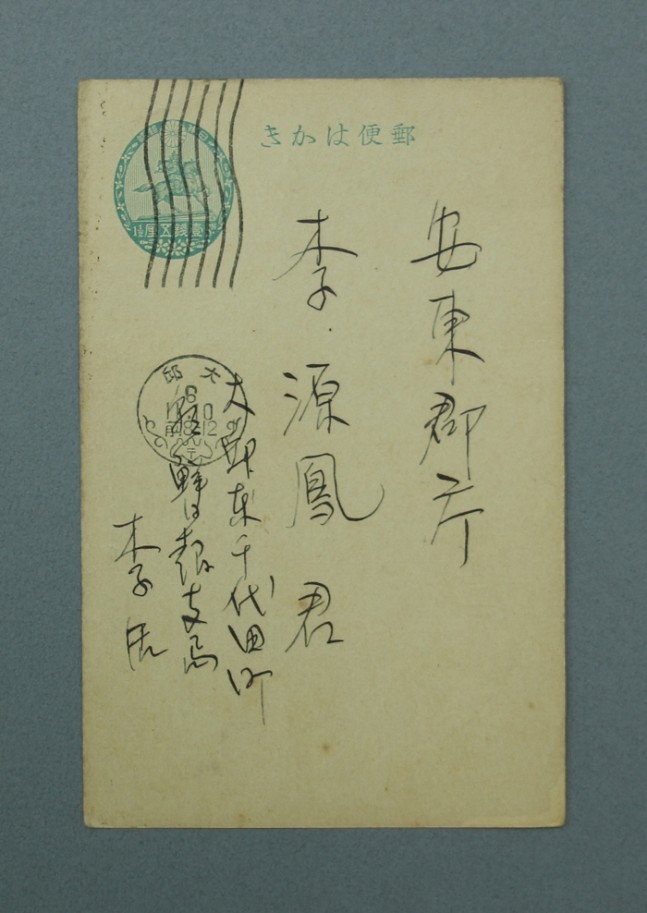 郵便はかき
壹錢五厘
安東郡庁
李源鳳君
大邱東千代田町
朝鮮日報支局
李活
大邱
6
11.10
前8-12